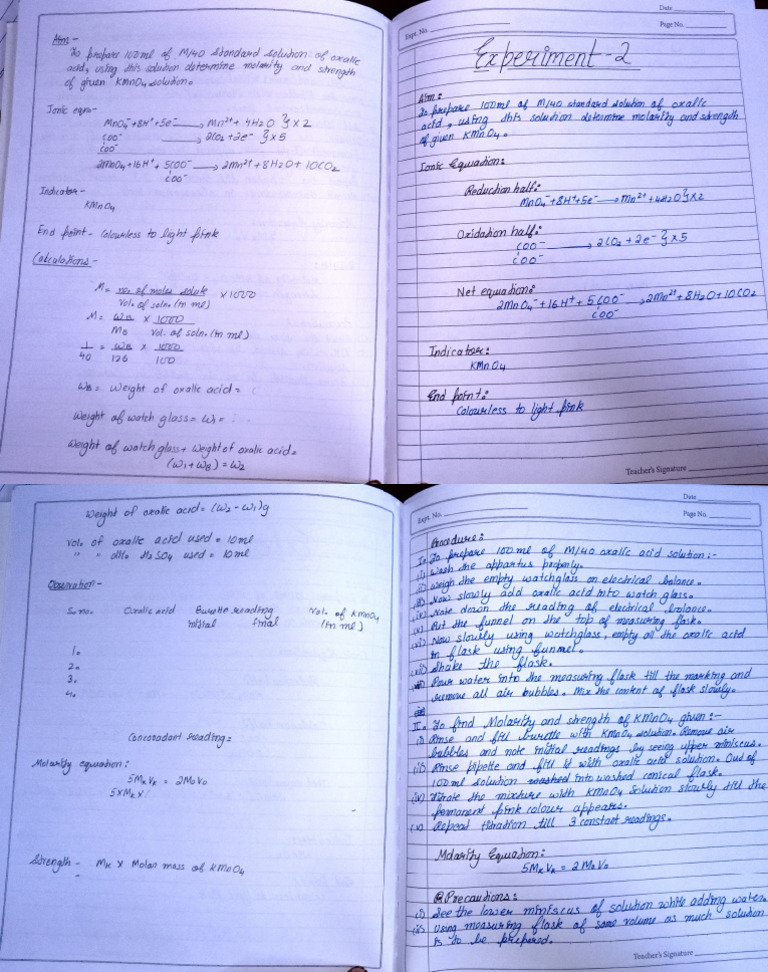 Aim -
To prepare 100ml of M/40 standard solution of oxalic
acid, using this solution determine molarity and strength
of given KMnO4 solution.
Ionic eqn -
MnO4⁻+8H⁺+5e⁻ → Mn²⁺ + 4H2O } x 2
COO⁻
COO⁻ → 2CO2+2e⁻ } x 5
2MnO4+16H⁺ + 5COO⁻ → 2Mn²⁺+8H2O+ 10CO2
COO⁻
Indicator -
KMnO4
End point - Colourless to light pink
Calculations -
M = no. of moles solute x 1000
Vol. of soln. (in ml)
M = WB x 1000
MB vol. of soln. (in ml)
1 = WB x 1000
40 126 100
WB = Weight of oxalic acid =
Weight of watch glass = W1 =
Weight of watch glass + Weight of oxalic acid =
(W1 + WB) = W2
Date
Expt. No.
Page No.
Experiment-2
Aim:
To prepare 100ml of M/40 standard solution of oxalic
acid, using this solution determine molarity and strength
of given KMnO4.
Ionic Equation:
Reduction half:
MnO4⁻+8H⁺+5e⁻ → Mn²⁺+4H2O } x 2
Oxidation half:
COO⁻ → 2CO2 + 2e⁻ } x 5
COO⁻
Net equation:
2MnO4⁻+16H⁺ + 5COO⁻ → 2Mn²⁺+8H2O+10CO2
COO⁻
Indicator:
KMnO4
End point:
Colourless to light pink
Teacher's Signature
Weight of oxalic acid = (W2 - W1)g
Vol. of oxalic acid used = 10ml
" " dil. H2SO4 used = 10ml
Observation -
S.no. Oxalic acid Burette reading Vol. of KMnO4
initial final (in ml)
1.
2.
3.
4.
Concordant reading =
Molarity equation:
5MRVR = 2MoVo
5xMRx
Strength - MR x Molar mass of KMnO4
Date
Expt. No.
Page No.
Procedure:
I. To prepare 100ml of M/40 oxalic acid solution:-
(i) Wash the appartus properly.
(ii) Weigh the empty watchglass on electrical balance.
(iii) Now slowly add oxalic acid into watch glass.
(iv) Note down the reading of electrical balance.
(v) Put the funnel on the top of measuring flask.
(vi) Now slowly using watchglass, empty all the oxalic acid
in flask using funnel.
(vii) Shake the flask.
Pour water into the measuring flask till the marking and
remove all air bubbles. Mix the content of flask slowly.
II. To find Molarity and strength of KMnO4 given:-
(i) Rinse and fill burette with KMnO4 solution. Remove air
bubbles and note initial readings by seeing upper miniscus.
(ii) Rinse pipette and fill it with oxalic acid solution. Out of
100ml solution washed into washed conical flask.
(iv) Titrate the mixture with KMnO4 solution slowly till the
permanent pink colour appears.
(v) Repeat titration till 3 constant readings.
Molarity Equation:
5MRVR = 2MoVo
Precautions:
(i) See the lower miniscus of solution while adding water.
(ii) Using measuring flask of same volume as much solution
is to be prepared.
Teacher's Signature